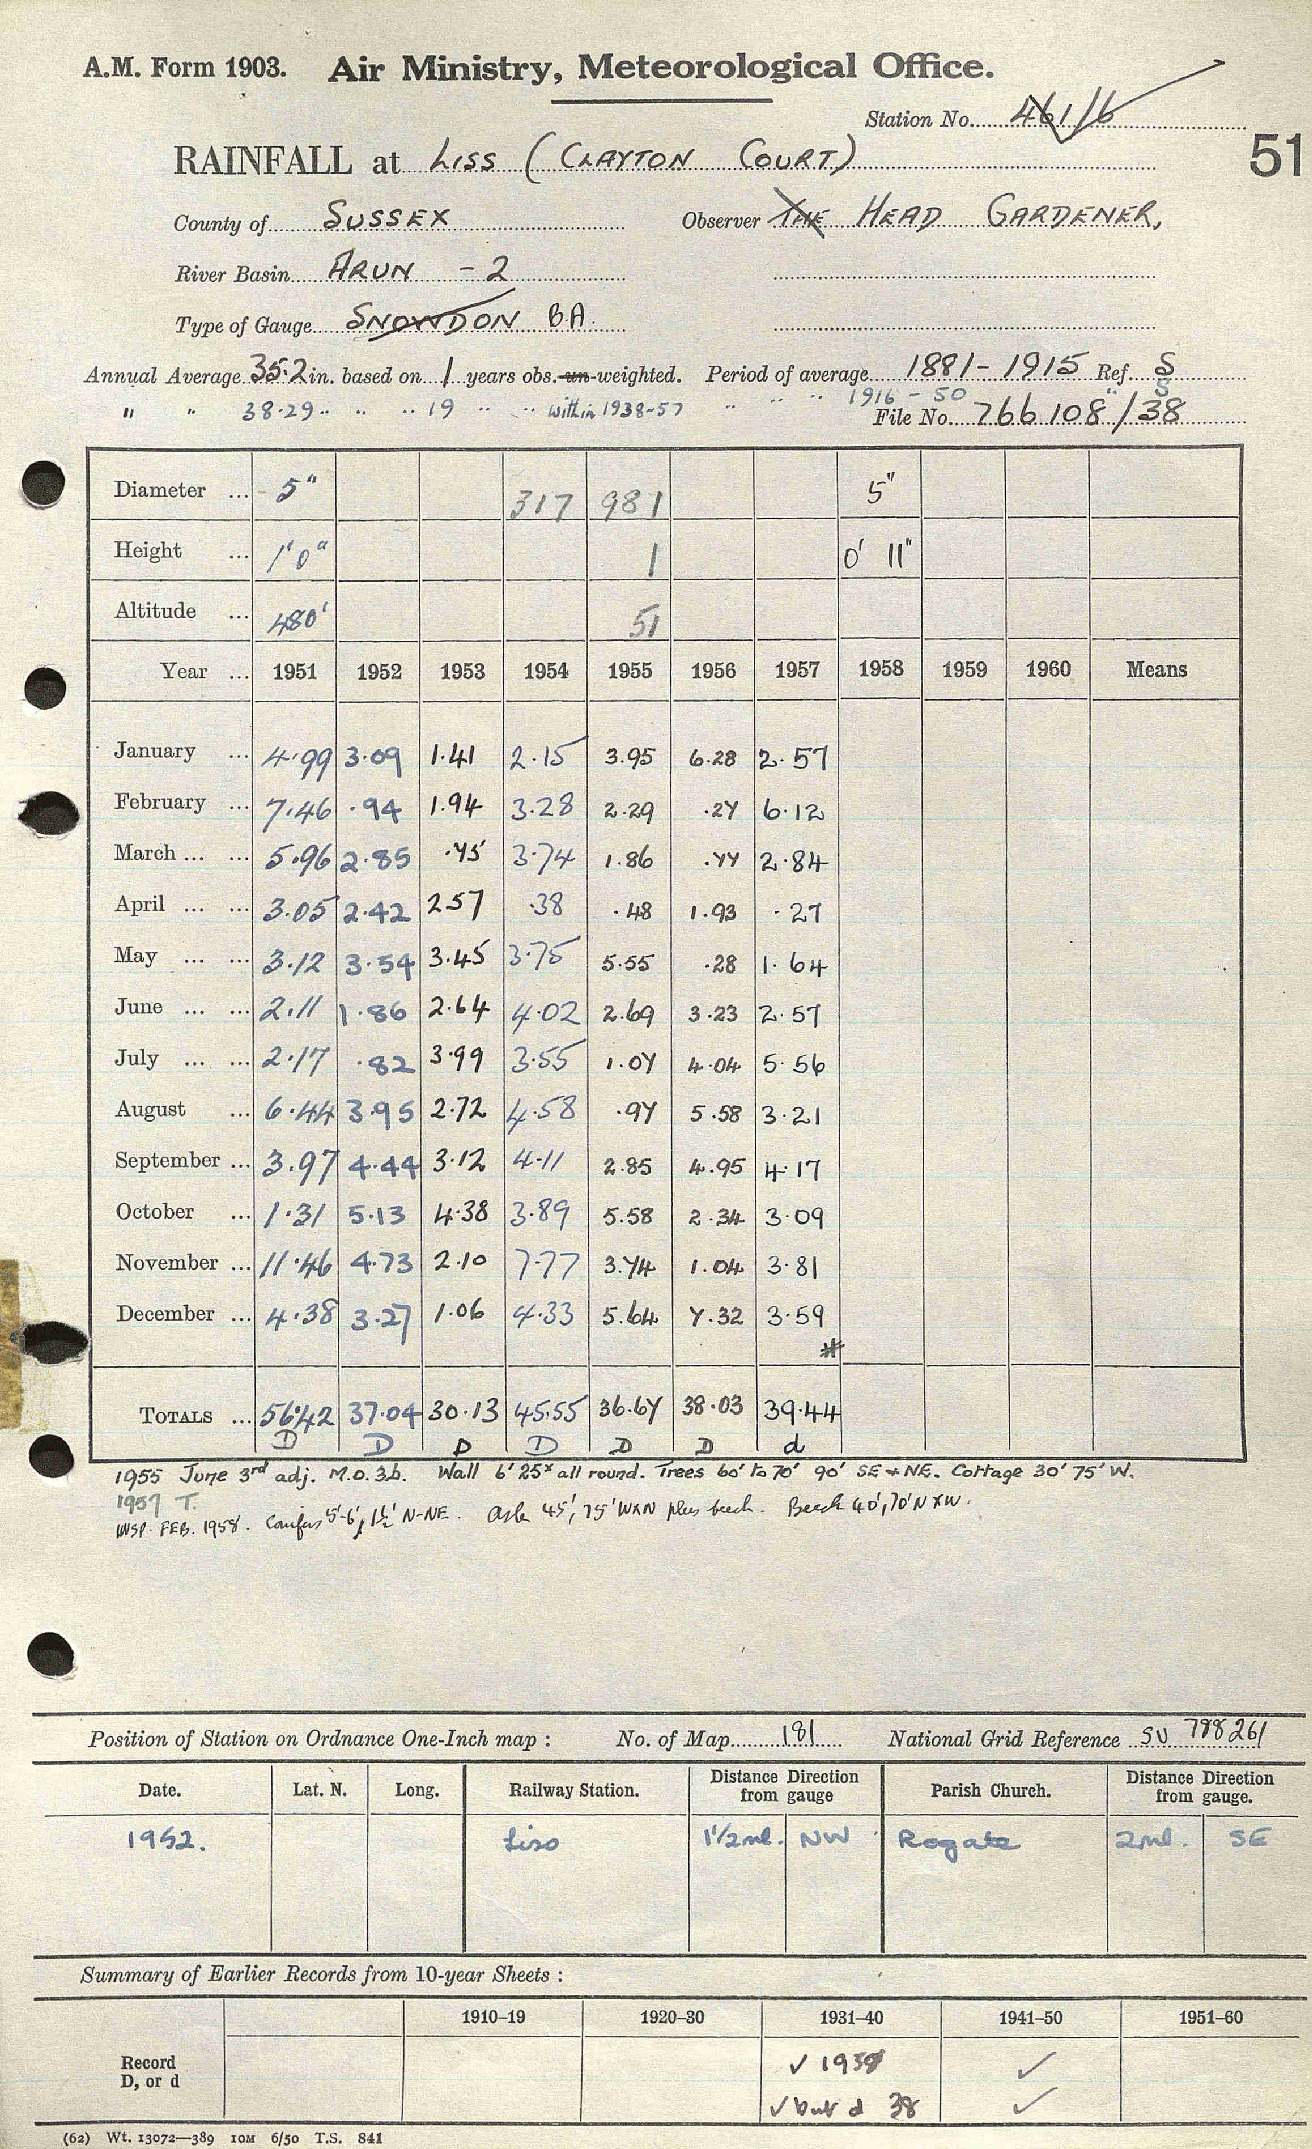 A.M. Form 1903. Air Ministry, Meteorological Office.
Station No. 461/6
51
RAINFALL at LISS (CLAYTON COURT)
County of SUSSEX Observer THE HEAD GARDENER,
River Basin ARUN - 2
Type of Gauge SNOWDON B.A.
Annual Average 35.2 in. based on 1 years obs. un-weighted. Period of average 1881-1915 Ref. S
" " 38.29 " " " 19 " " within 1938-57 " " " 1916-50 " S
File No. 766108/38
Diameter ... 5" 317 981 5"
Height ... 1'0" 1 0' 11"
Altitude ... 480' 51
Year ... 1951 1952 1953 1954 1955 1956 1957 1958 1959 1960 Means
January ... 4.99 3.09 1.41 2.15 3.95 6.28 2.57
February ... 7.46 .94 1.94 3.28 2.29 .27 6.12
March ... ... 5.96 2.85 .75 3.74 1.86 .77 2.84
April ... ... 3.05 2.42 2.57 .38 .48 1.93 .27
May ... ... 3.12 3.54 3.45 3.75 5.55 .28 1.64
June ... ... 2.11 1.86 2.64 4.02 2.69 3.23 2.57
July ... ... 2.17 .82 3.99 3.55 1.07 4.04 5.56
August ... 6.44 3.95 2.72 4.58 .97 5.58 3.21
September ... 3.97 4.44 3.12 4.11 2.85 4.95 4.17
October ... 1.31 5.13 4.38 3.89 5.58 2.34 3.09
November ... 11.46 4.73 2.10 7.77 3.74 1.04 3.81
December ... 4.38 3.27 1.06 4.33 5.64 7.32 3.59
#
TOTALS ... 56.42 37.04 30.13 45.55 36.67 38.03 39.44
D D D D D D d
1955 June 3rd adj. M.O. 3b. Wall 6' 25x all round. Trees 60' to 70' 90' SE + NE. Cottage 30' 75' W.
1957 T.
INSP. FEB. 1958. Conifers 5'-6', 1½' N-NE. Ash 45', 75' WxN plus beech. Beech 40', 70' N x W.
Position of Station on Ordnance One-Inch map : No. of Map 181 National Grid Reference SU 788261
Date. Lat. N. Long. Railway Station. Distance Direction from gauge Parish Church. Distance Direction from gauge.
1952. Liss 1½ml. NW Rogate 2ml. SE
Summary of Earlier Records from 10-year Sheets :
1910–19 1920–30 1931–40 1941–50 1951–60
Record D, or d ✓ 1938 ✓
✓ but d 38 ✓
(62) Wt. 13072—389 10M 6/50 T.S. 841